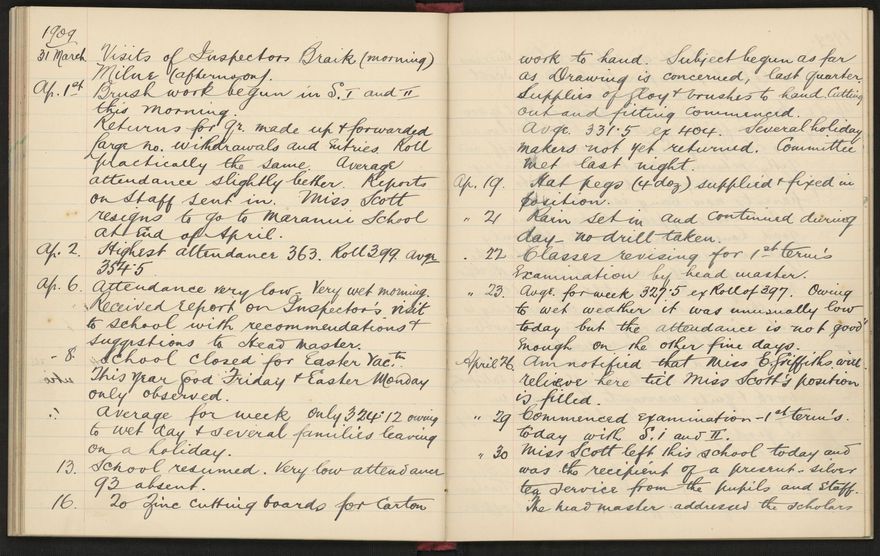 1909
31 March. Visits of Inspectors Braik (morning)
Milne (afternoon).
Ap. 1st Brush work begun in S. I and II
this morning.
Returns for Qr. made up & forwarded
large no. withdrawals and Entries Roll
practically the same. Average
attendance slightly better. Reports
on Staff sent in. Miss Scott
resigns to go to Maranui School
at End of April.
Ap. 2. Highest attendance 363. Roll 399 avge
354.5
Ap. 6. Attendance very low. Very wet morning.
Received report on Inspector's visit
to school with recommendations &
suggestions to Head Master.
- 8. School closed for Easter Vactn.
This year Good Friday & Easter Monday
only observed.
Average for week only 324.12 owing
to wet day & several families leaving
on a holiday.
13. School resumed. Very low attendance
93 absent.
16. 20 Zinc cutting boards for Carton
work to hand. Subject begun as far
as Drawing is concerned, last quarter.
Supplies of & brushes to hand. Cutting
out and fitting commenced.
Avge. 331.5 ex 404. Several holiday
makers not yet returned. Committee
met last night.
Ap. 19. Hat pegs (4 doz) supplied & fixed in
position.
" 21 Rain set in and continued during
day - no drill taken.
. 22 Classes revising for 1st term's
Examination by head master.
" 23. Avge. for week 327.5 ex Roll of 397. Owing
to wet weather it was unusually low
today but the attendance is not good
enough on the other fine days.
April 26. Am notified that Miss E. Griffiths will
relieve here til Miss Scott's position
is filled.
" 29 Commenced Examination - 1st term's.
today with S. I and II.
" 30 Miss Scott left this school today and
was the recipient of a present - silver
tea service from the pupils and Staff.
The head master addressed the scholars